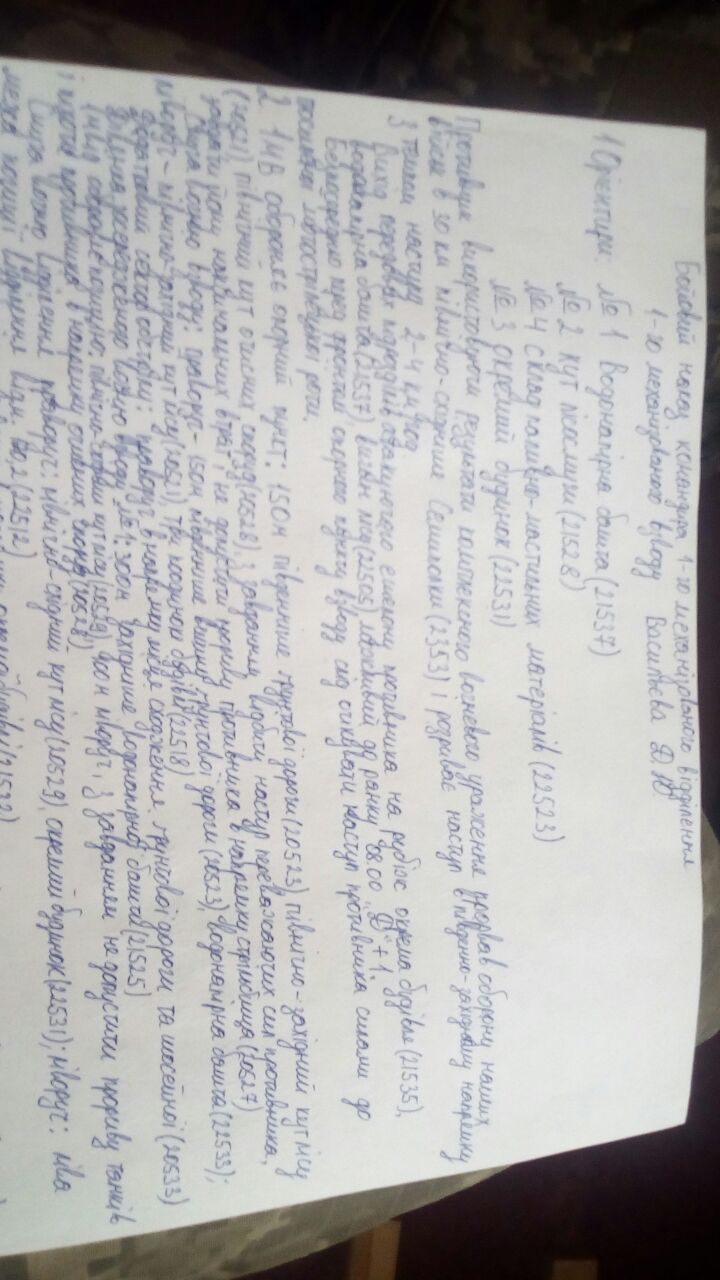 Бойовий наказ командира 1-го механізованого відділення
1-го механізованого взводу Васильєва Д.Ю
1 Орієнтири: №1 Водонапірна башта (21537)
№2 кут лісосмуги (21528)
№4 склад паливно-мастильних матеріалів (22523)
№3 окремий будинок (22531)
Противник використовуючи результати комплексного вогневого ураження прорвав оборону наших
військ в 30 км північно-східніше Семиполки (2353) і розвиває наступ в південно-західному напрямку
З темпом наступу 2-4 км/год.
Вихід передових підрозділів атакуючого ешелону противника на рубіж окрема будівля (21535),
водонапірна башта (21537), вигин лісу (22505), можливий до ранку 08.00 "Д"+1.
Безпосередньо перед фронтом опорного пункту взводу слід очікувати наступ противника силами до
посиленої мотострілецької роти.
2. 1 МВ обороняє опорний пункт: 150м південніше ґрунтової дороги (20523), північно-західний кут лісу
(20521), північний кут очисних споруд (20528), з завданням відбити наступ переважаючих сил противника,
завдати йому максимальних втрат, не допустити прориву противника в напрямку стрільбища (20527)
Смуга вогню взводу: праворуч - 150м південніше ґрунтової дороги (20523), водонапірна башта (22533);
ліворуч - північно-західний кут лісу (20521), три поодинокі будівлі (22518)
Додатковий сектор обстрілу: праворуч в напрямку місця сходження ґрунтової дороги та шосейної (20533)
Ділянка зосередженого вогню взводу №1: 300м західніше водонапірної башти (21525)
1 мвід обороняє позицію: північно-східний кут лісу (20529), 100м ліворуч, з завданням не допустити прориву танків
і піхоти противника в напрямку очисних споруд (20528).
Смуга вогню відділення праворуч: північно-східний кут лісу (20529), окремий будинок (22531); ліворуч: ліва
межа позиції відділення відм. (22512)
окремої будівлі